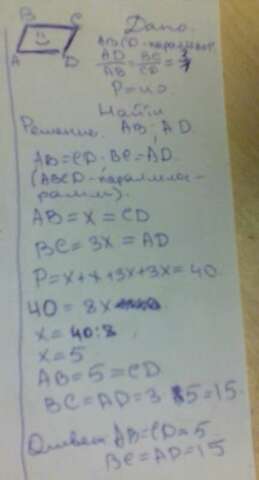 B C
A D
Дано:
ABCD-паралл
AD/AB = BC/CD = 3/1
P=40
Найти
AB, AD
Решение.
AB=CD. BC=AD.
(ABCD-параллело-
грамм).
AB=X=CD
BC=3X=AD
P=X+X+3X+3X=40
40=8X
X=40:8
X=5
AB=5=CD
BC=AD=3·5=15.
Ответ AB=CD=5
BC=AD=15